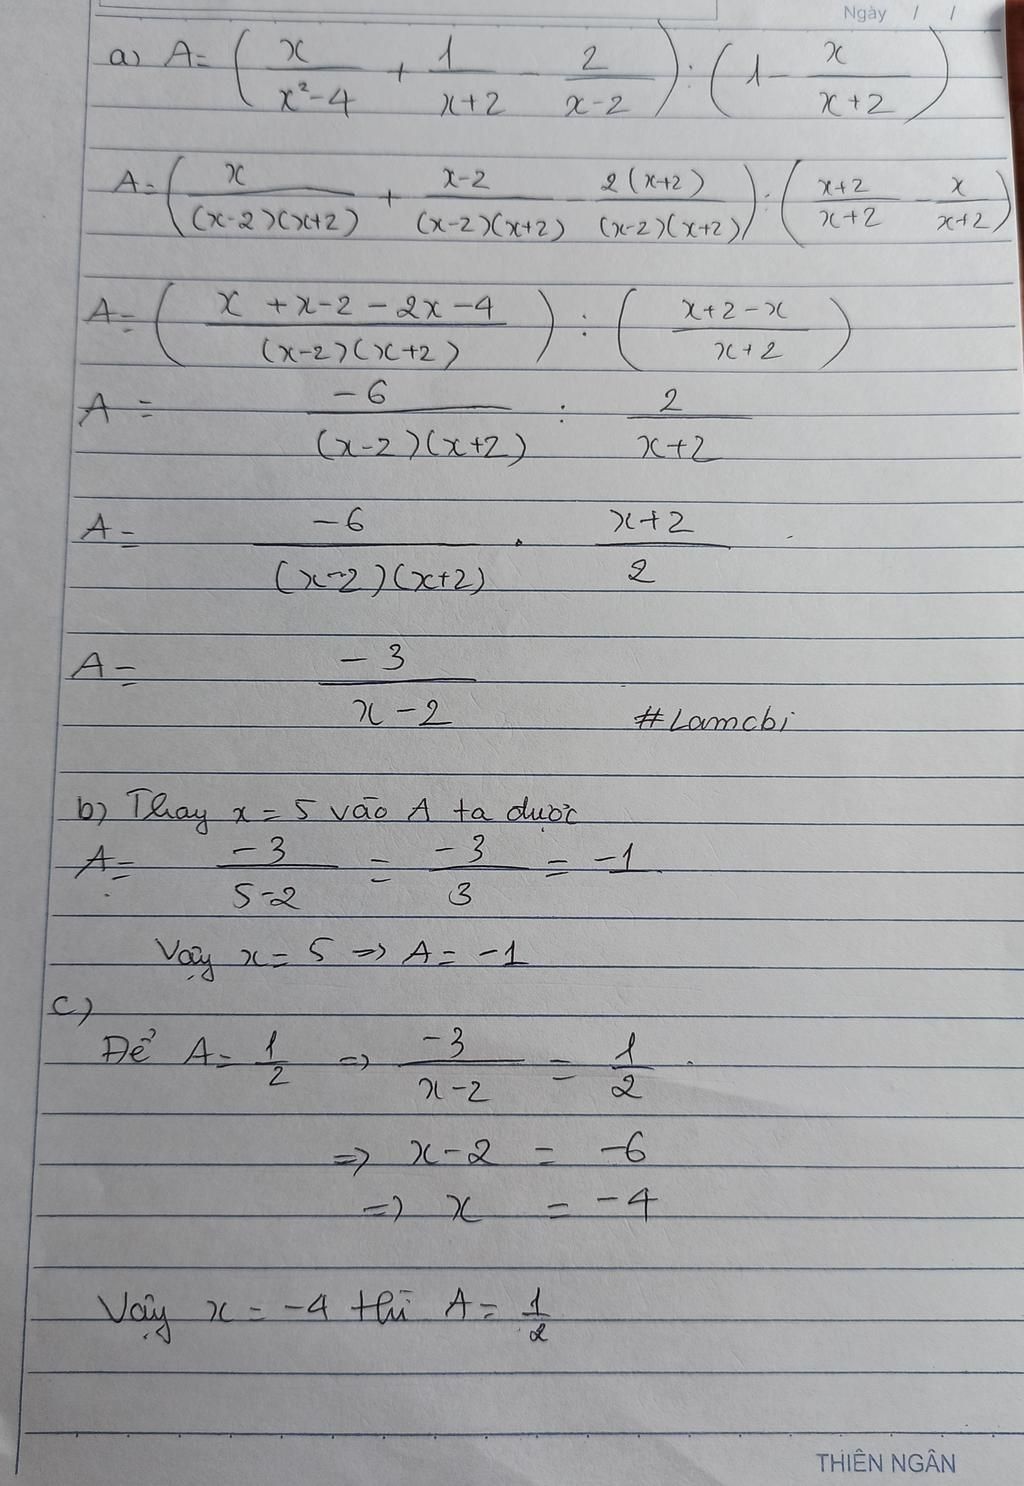 Ngày / /
a) A = (x/(x²-4) + 1/(x+2) - 2/(x-2)) : (1 - x/(x+2))
A = (x/((x-2)(x+2)) + (x-2)/((x-2)(x+2)) - 2(x+2)/((x-2)(x+2))) : ((x+2)/(x+2) - x/(x+2))
A = ((x + x-2 - 2x - 4)/((x-2)(x+2))) : ((x+2-x)/(x+2))
A = -6/((x-2)(x+2)) : 2/(x+2)
A = -6/((x-2)(x+2)) . (x+2)/2
A = -3/(x-2)
#Lamcbi
b) Thay x = 5 vào A ta được
A = -3/(5-2) = -3/3 = -1
Vậy x = 5 => A = -1
c)
Để A = 1/2 => -3/(x-2) = 1/2
=> x-2 = -6
=> x = -4
Vậy x = -4 thì A = 1/2
THIÊN NGÂN